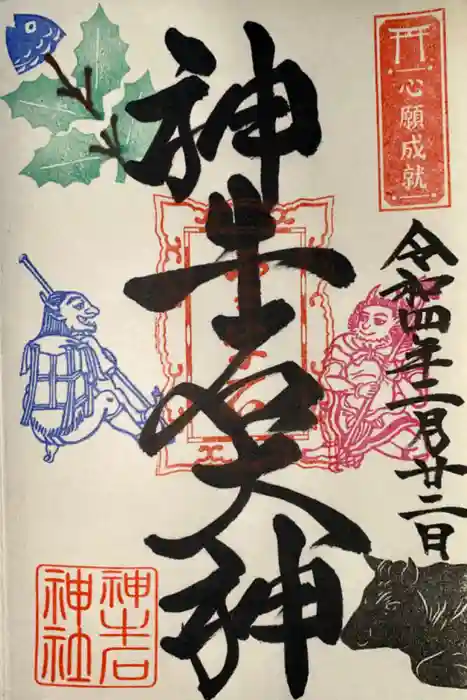 心願成就
令和四年二月廿二日
神
大神
神社